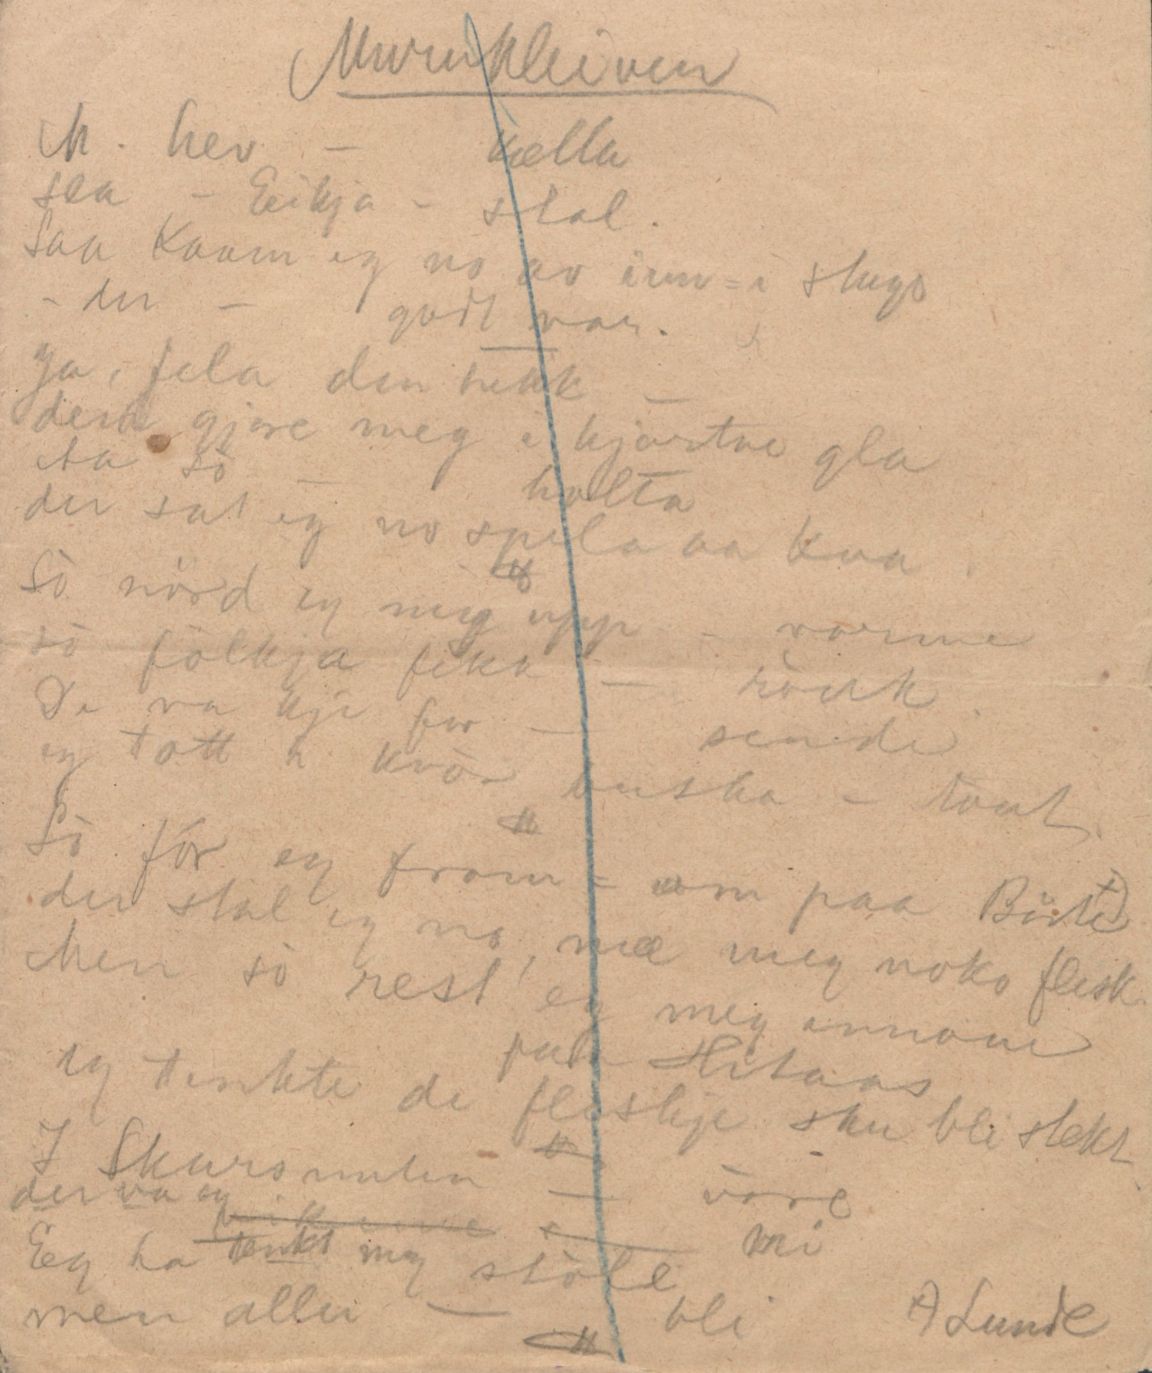 Murukleiven
M. hev — kella
sea — Eikja — stal.
Saa kaam eg no av inn = i stugo
— der — godt var.
Ja, fela den hekk —
den gjore meg i kjartae gla
Aa så — holta
der sat eg no spela aa kva.
Så nörd eg meg upp — varme
så fölkja feka — röuk.
De va kje for — sende
eg tott h kvör buska — tout.
Så för eg fram = om paa Börte
der stal eg no, mæ meg noko flesk.
Men så rest' eg meg innover
paa Hitaas
eg tenkte de fleskje sku bli stekt.
I Skuro — vöre
der va eg — mi
Eeg ha tenkt meg stöle
men aller — bli
A Lunde